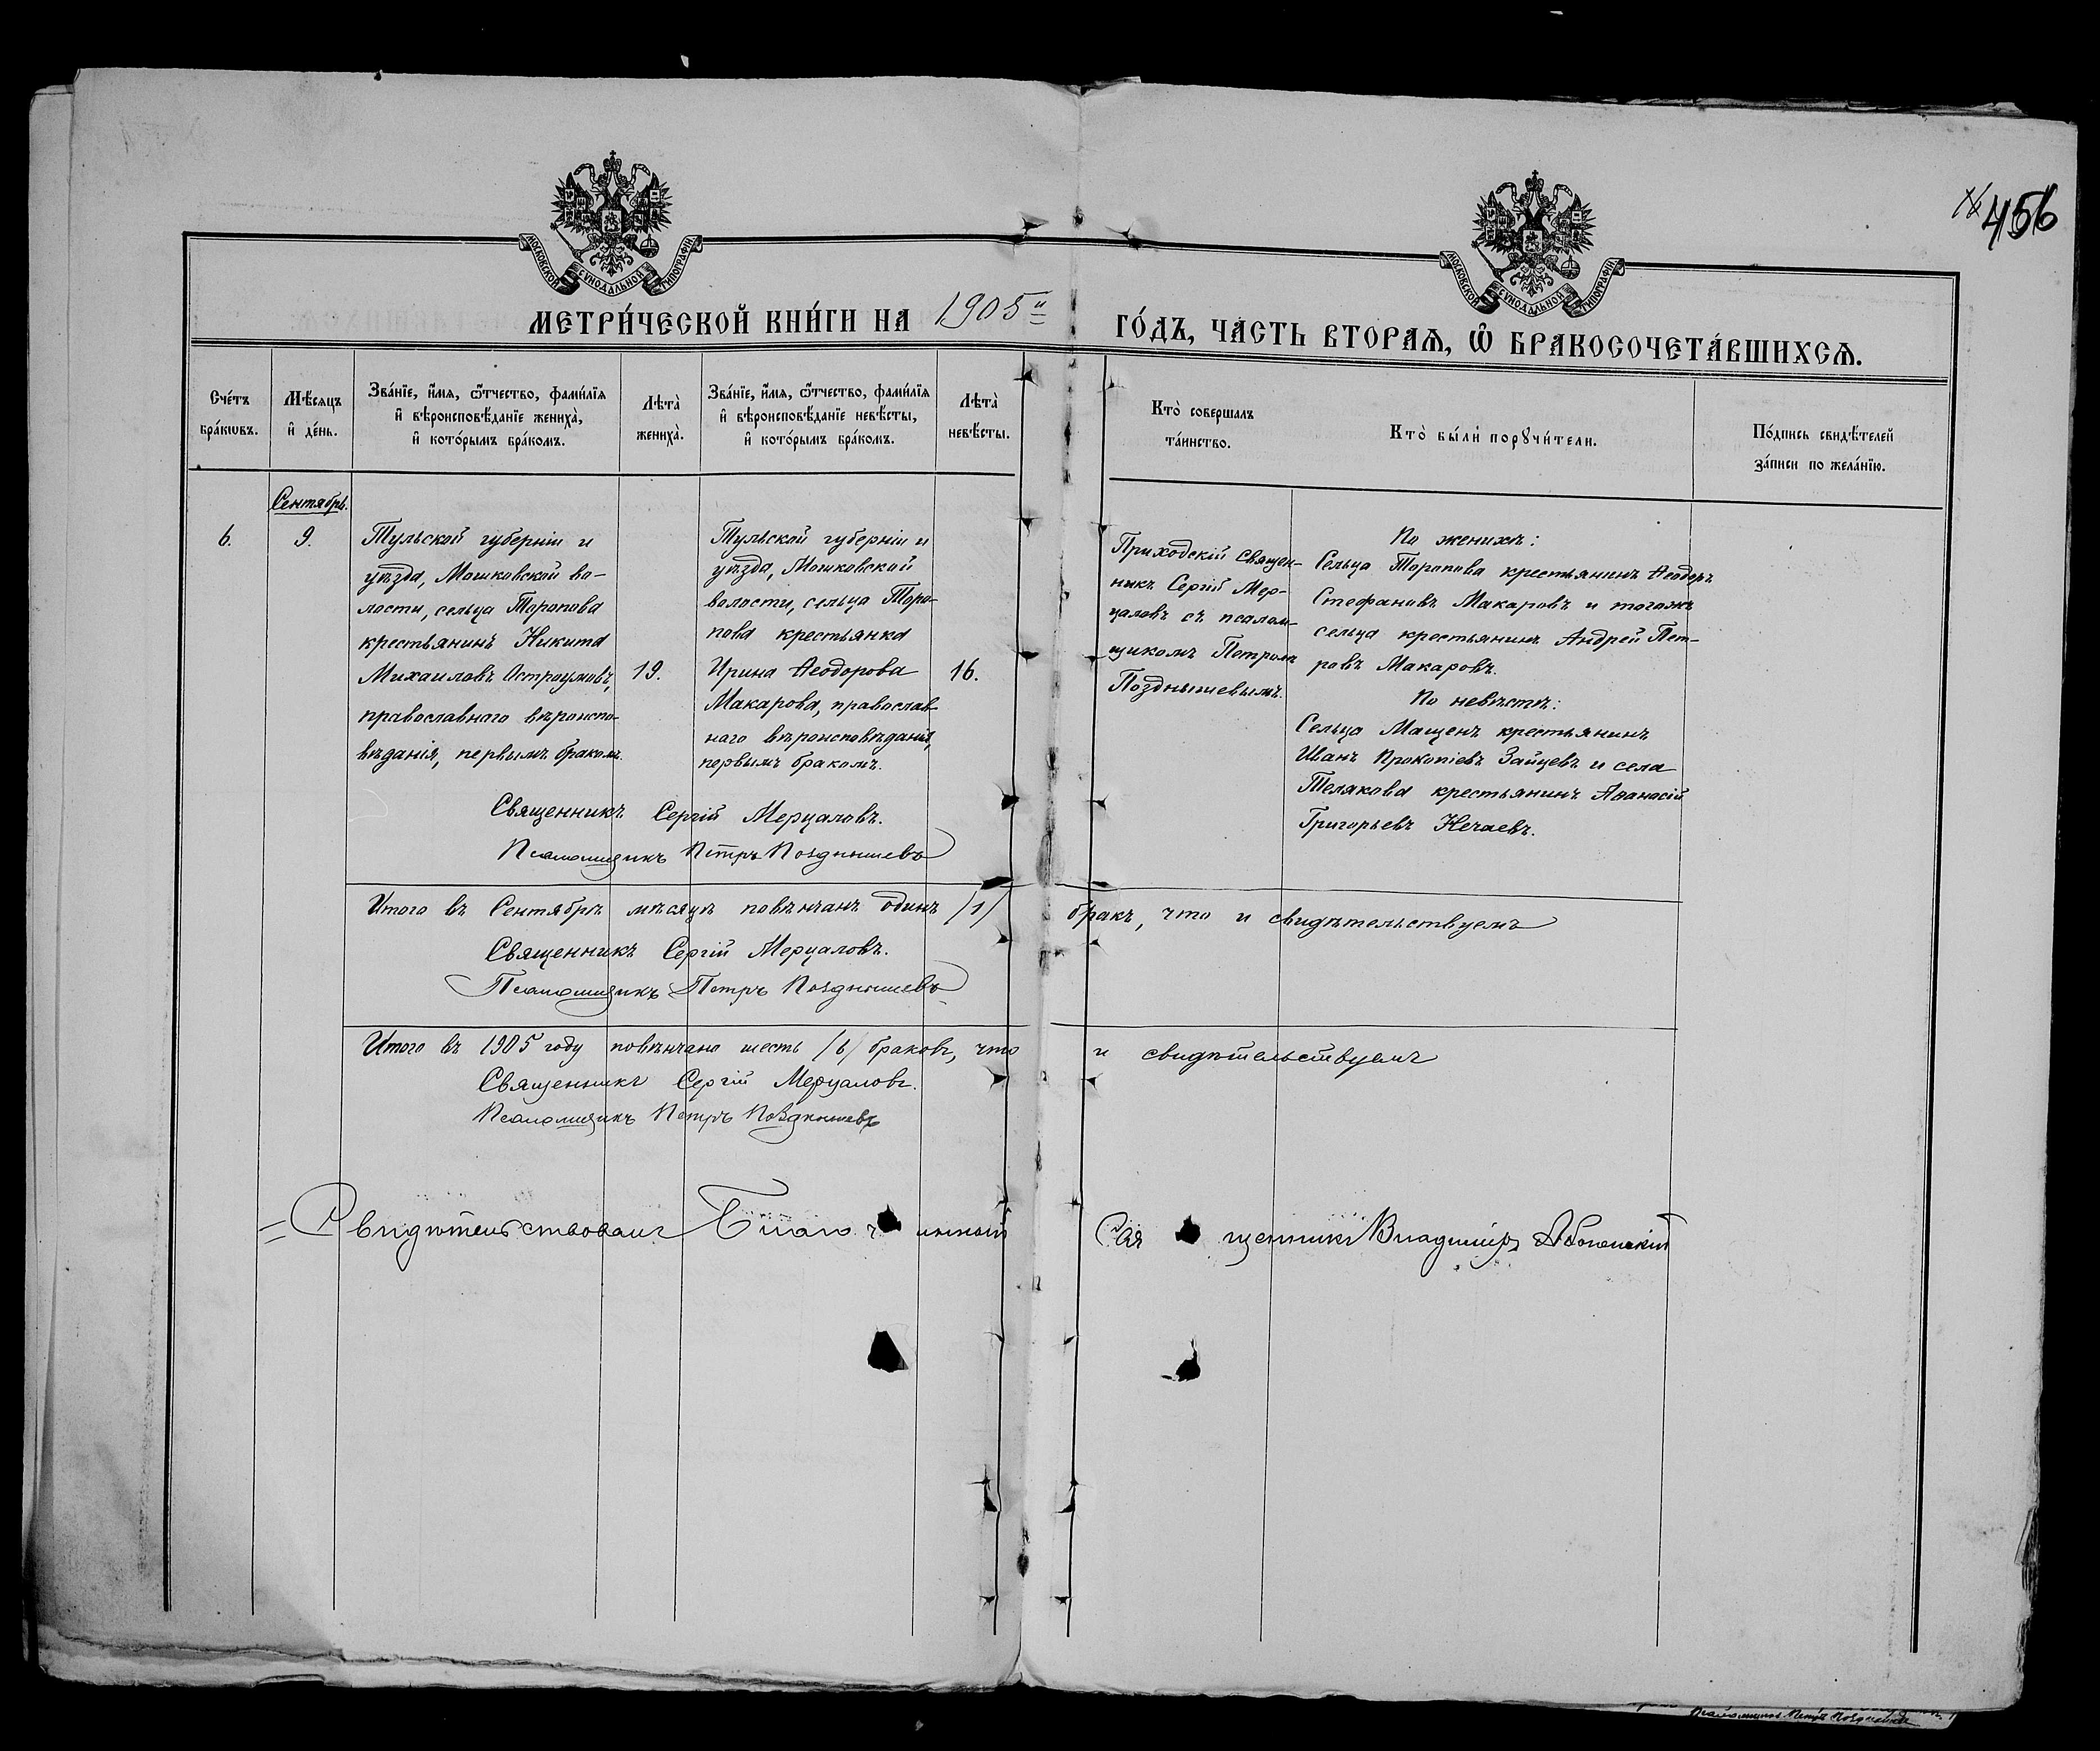 № 456
МОСКОВСКОЙ СѴНОДАЛЬНОЙ ТИПОГРАФІИ
МОСКОВСКОЙ СѴНОДАЛЬНОЙ ТИПОГРАФІИ
МЕТРИ́ЧЕСКОЙ КНИ́ГИ НА 1905й ГО́ДЪ, ЧАСТЬ ВТОРАѦ, Ѡ҆ БРАКОСОЧЕТА́ВШИХСѦ.
Сче́тъ
бра́кѡвъ.
Мѣ́сяцъ
и҆ де́нь.
Зва́нїе, и҆́мѧ, ѻ҆́тчество, фами́лїѧ
и҆ вѣроисповѣ́данїе жениха̀,
и҆ кото́рымъ бра́комъ.
Лѣта̀
жениха̀.
Зва́нїе, и҆́мѧ, ѻ҆́тчество, фами́лїѧ
и҆ вѣроисповѣ́данїе невѣ́сты,
и҆ кото́рымъ бра́комъ.
Лѣта̀
невѣ́сты.
Кто̀ соверша́лъ
та́инство.
Кто̀ бы́ли порꙋчи́тели.
По́дпись свидѣ́телей
за́писи по жела́нїю.
Сентябрь.
6.
9.
Тульской губерніи и
уѣзда, Мошковской во-
лости, сельца Торопова
крестьянинъ Никита
Михаиловъ Остроумовъ,
православнаго вѣроиспо-
вѣданія, первымъ бракомъ.
19.
Тульской губерніи и
уѣзда, Мошковской
волости, сельца Торо-
пова крестьянка
Ирина Ѳеодорова
Макарова, православ-
наго вѣроисповѣданія,
первымъ бракомъ.
16.
Приходскій Священ-
никъ Сергій Мер-
цаловъ съ псалом-
щикомъ Петромъ
Позднышевымъ.
По женихѣ:
Сельца Торопова крестьянинъ Ѳеодоръ
Стефановъ Макаровъ и тогожъ
сельца крестьянинъ Андрей Пет-
ровъ Макаровъ.
По невѣстѣ:
Сельца Мащенъ крестьянинъ
Иванъ Прокопіевъ Зайцевъ и села
Телякова крестьянинъ Аѳанасій
Григорьевъ Нечаевъ.
Священникъ Сергій Мерцаловъ.
Псаломщикъ Петръ Позднышевъ
Итого въ Сентябрѣ мѣсяцѣ повѣнчанъ одинъ /1/ бракъ, что и свидѣтельствуемъ
Священникъ Сергій Мерцаловъ.
Псаломщикъ Петръ Позднышевъ
Итого въ 1905 году повѣнчано шесть /6/ браковъ, что и свидѣтельствуемъ
Священникъ Сергій Мерцаловъ.
Псаломщикъ Петръ Позднышевъ
Свидѣтельствовалъ Благочинный Священникъ Владиміръ
Псаломщикъ Петръ Позднышевъ